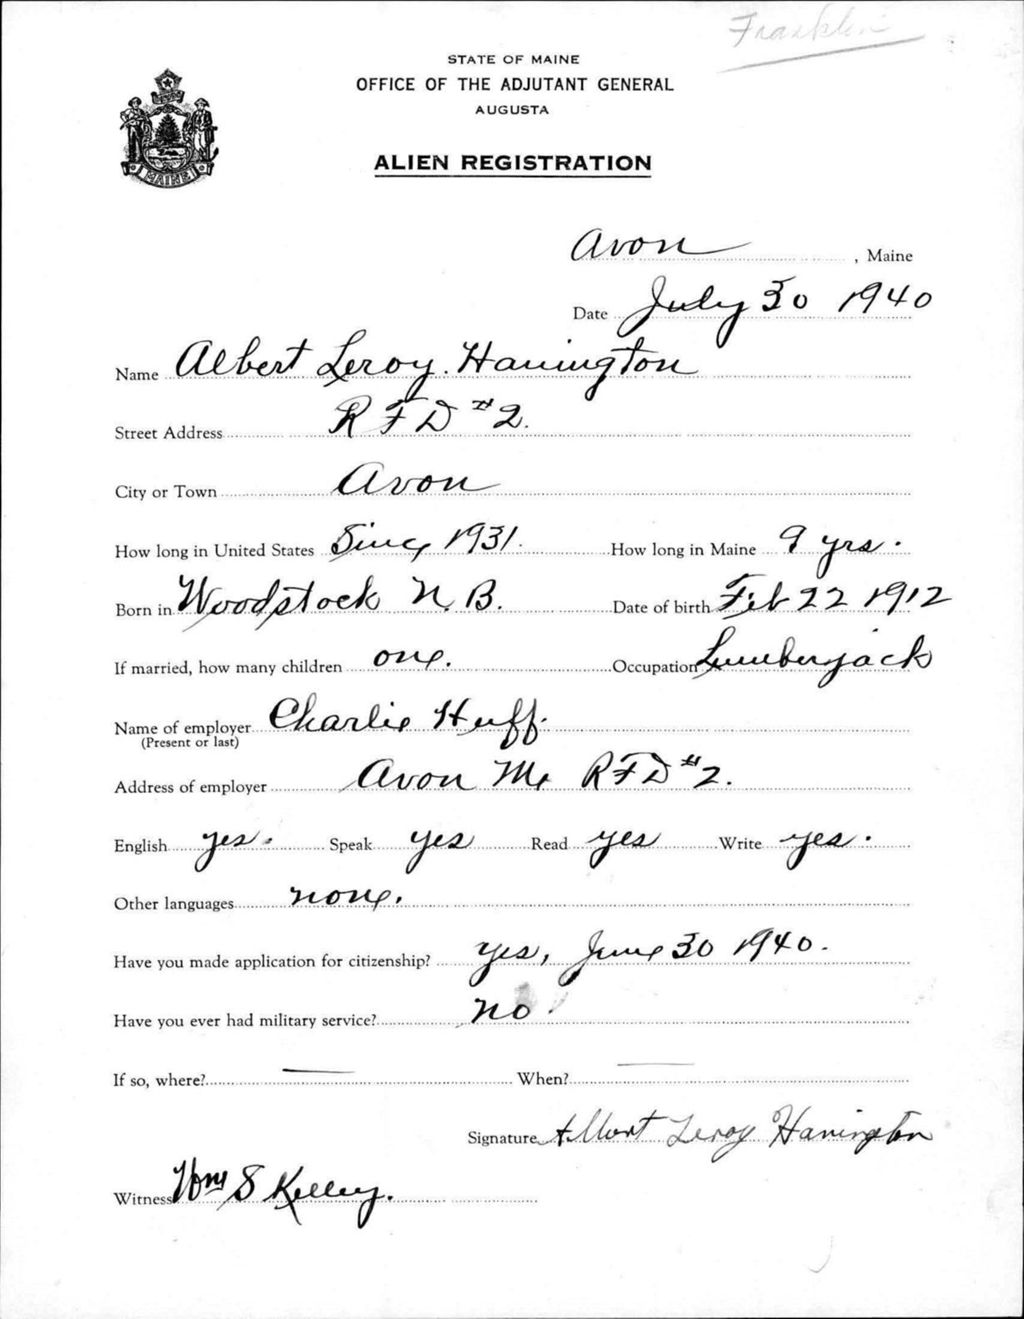 Franklin
STATE OF MAINE
OFFICE OF THE ADJUTANT GENERAL
AUGUSTA
ALIEN REGISTRATION
MAINE
Avon, Maine
Date July 30 1940
Name Albert Leroy Hanington
Street Address R F D #2.
City or Town Avon
How long in United States Since 1931. How long in Maine 9 yrs.
Born in Woodstock N. B. Date of birth Feb 22 1912
If married, how many children one. Occupation Lumberjack
Name of employer Charlie Huff.
(Present or last)
Address of employer Avon Me RFD #2.
English yes. Speak yes Read yes Write yes.
Other languages none.
Have you made application for citizenship? yes, June 30 1940.
Have you ever had military service? no.
If so, where? — When? —
Signature Albert Leroy Hanington
Witness Wm S Kelley.